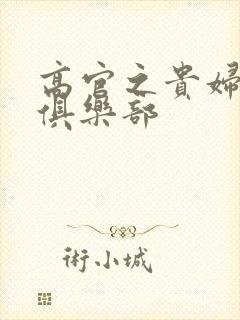 高官之貴婦
俱樂部
術小城